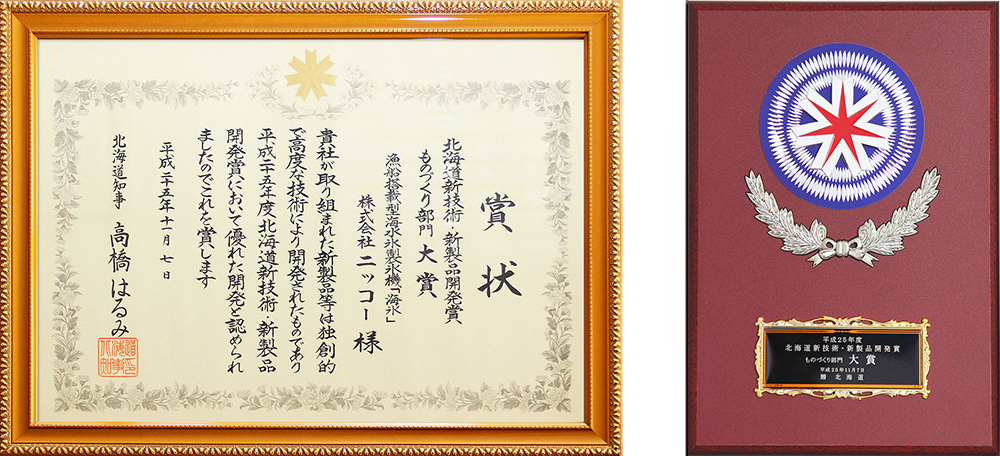 賞状
北海道新技術・新製品開発賞
ものづくり部門 大賞
漁船搭載型海水氷製氷機「海氷」
株式会社ニッコー 様
貴社が取り組まれた新製品等は独創的
で高度な技術により開発されたものであり
平成二十五年度北海道新技術・新製品
開発賞において優れた開発と認められ
ましたのでこれを賞します
平成二十五年十一月七日
北海道知事 高橋はるみ
平成25年度
北海道新技術・新製品開発賞
ものづくり部門 大賞
平成25年11月7日
贈 北海道